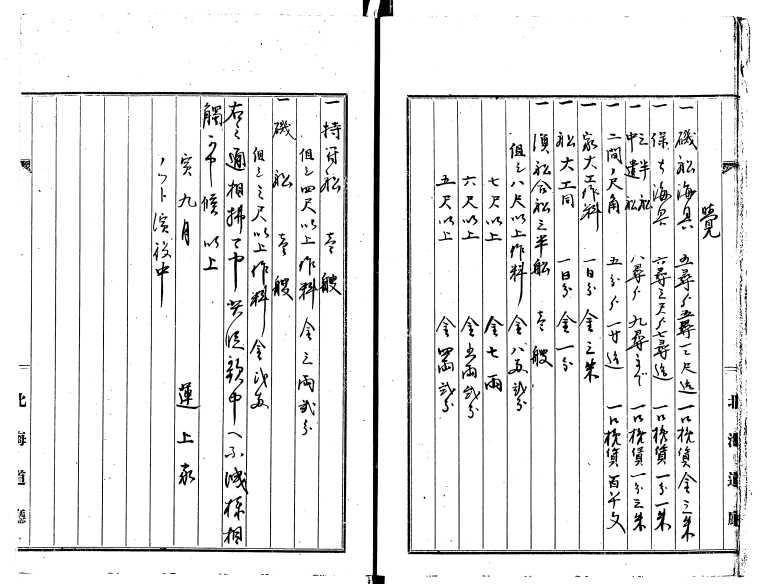 覚
一磯船海具 五尋ゟ五尋一二尺迄 一口挽賃金三朱
一保ち海具 六尋三尺ゟ七尋迄 一口挽賃一分一朱
一三半船
中遣船 八尋ゟ九尋まで 一口挽賃一分三朱
一二間ノ尺角 五分ゟ一寸迄 一口挽賃百五十文
一家大工作料 一日分金三朱
一船大工同 一日分金一分
一須船合船三半船 壱艘
但シ八尺以上作料 金八両弐分
七尺以上 金七両
六尺以上 金五両弐分
五尺以上 金四両弐分
北海道庁
一持符船 壱艘
但シ四尺以上作料 金三両弐分
一磯船 壱艘
但シ三尺以上作料 金弐両
右之通相掛ケ申 中ヘ不洩様相
触可申候以上
寅九月 運上家
浜役中
北海道庁